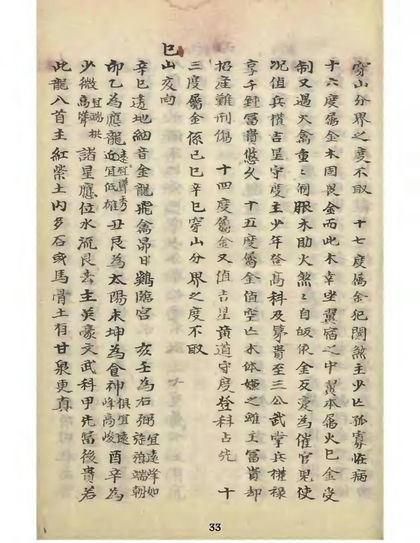 穿山分界之度不取　十七度屬金犯関煞主少亡孤寡疾病
十六度屬金木固畏金而此木幸坐翼宿之中翼本屬火巳金受
制又遇火禽重〻制服木助火煞〻自皈依金反変為催官鬼使
況值兵樻吉星守度主少年登高科及第貴至三公武掌兵權祿
享千鍾富貴悠久　十五度屬金值空亡木体嫌之雖主富貴却
招産難刑傷　十四度屬金又值吉星黄道守度登科占先　十
三度屬金係己巳辛巳穿山分界之度不取
巳山亥向
辛巳透地納音金龍飛禽昴日鷄臨宮　亥壬為右弼宜遠峰如弥雅端朝
卯乙為應龍遠宜輝秀近宜低雄丑艮為太陽未坤為食神俱宜遠峰高峻酉辛為
少微宜端拱高聳諸星應位水流艮去主英豪文武科甲先富後貴若
此龍入首主紅紫土内多石或馬骨土有甘泉更真
33